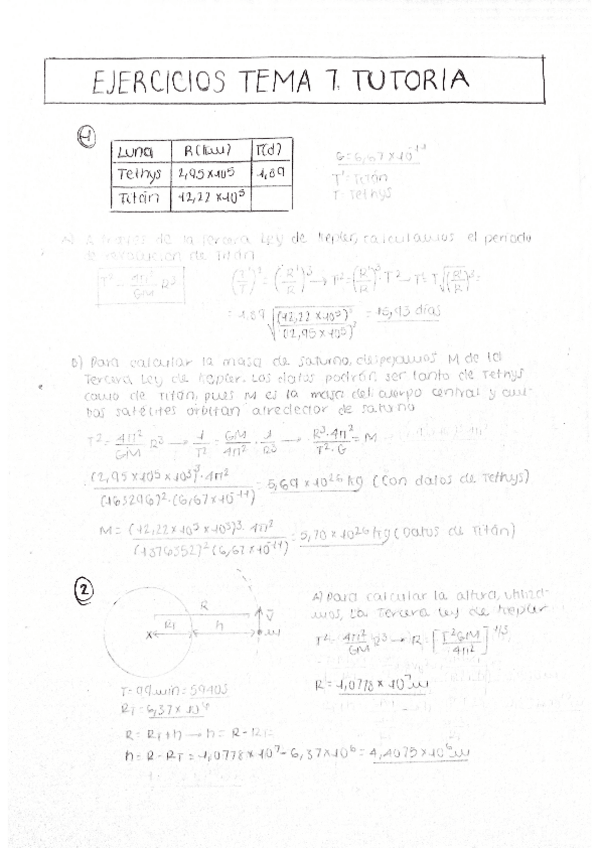 EJERCICIOS TEMA 7. TUTORIA
1
Luna R(km) T(d)
Tethys 2,95×10⁵ 1,89
Titán 12,22×10⁵
G = 6,67×10⁻¹¹
T' = Titán
T = Tethys
A) A través de la Tercera Ley de Kepler, calculamos el periodo
de revolución de Titán
T² = 4π²/GM R³ (T'/T)² = (R'/R)³ → T'² = (R'/R)³ T² → T' = T√(R'/R)³ =
= 1,89 √(12,22×10⁵)³/(2,95×10⁵)³ = 15,93 días
b) Para calcular la masa de saturno, despejamos M de la
Tercera Ley de Kepler. Los datos podrán ser tanto de Tethys
como de Titán, pues M es la masa del cuerpo central y am-
bos satélites orbitan alrededor de saturno
T² = 4π²/GM R³ → 1/T² = GM/4π² · 1/R³ → R³·4π²/T²·G = M
(2,95×10⁵×10³)³·4π²/(163296)²·(6,67×10⁻¹¹) = 5,69×10²⁶ kg (Con datos de Tethys)
M = (12,22×10⁵×10³)³·4π²/(1376352)²(6,67×10⁻¹¹) = 5,70×10²⁶ kg (Datos de Titán)
2
R
RT h m v
A) Para calcular la altura, utiliza-
mos, La Tercera Ley de Kepler
T² = 4π²/GM R³ → R = [T²GM/4π²]^1/3
R = 1,0778×10⁷ m
T = 99 min = 5940 s
RT = 6,37×10⁶
R = RT + h → h = R - RT
h = R - RT = 1,0778×10⁷ - 6,37×10⁶ = 4,4075×10⁶ m